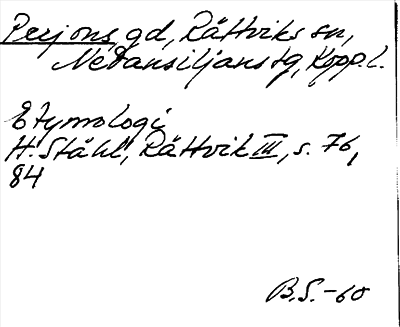 Persjons gd, Rättviks sn,
Nedansiljans tg, Kopp. l.
Etymologi
H. Ståhl, Rättvik III, s. 76,
84
B.S. -60